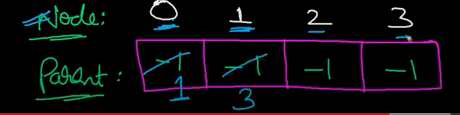 Node: 0 1 2 3
Parent: -1 -1 -1 -1
1 3